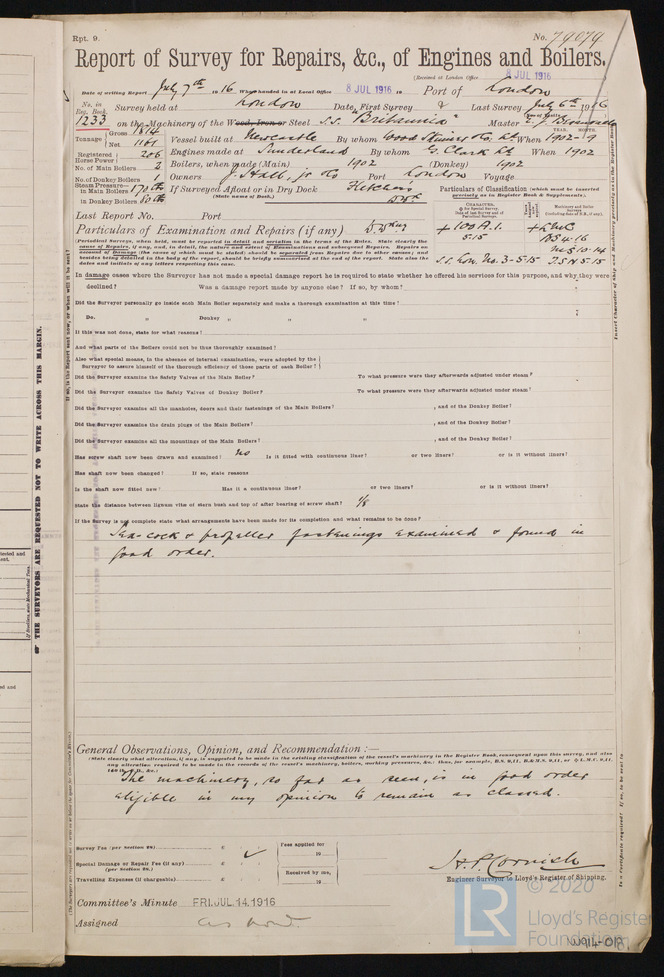 Rpt. 9.
No. 79079
Report of Survey for Repairs, &c., of Engines and Boilers.
(Received at London Office 8 JUL 1916
Date of writing Report July 7th 1916 When handed in at Local Office 8 JUL 1916 Port of London
No. in Reg. Book. 1233 Survey held at London Date, First Survey & Last Survey July 6th 1916
on the Machinery of the Wood, Iron or Steel S.S. "Britannia" Master
Tonnage Gross 1814 Net 1161 Vessel built at Newcastle By whom Wood Skinner & Co. Ld When 1902-9
Registered Horse Power 206 Engines made at Sunderland By whom G. Clark Ld When 1902
No. of Main Boilers 2 Boilers, when made (Main) 1902 (Donkey) 1902
No. of Donkey Boilers 1 Owners J. Hall, jr & Co Port London Voyage
Steam Pressure in Main Boilers 170 lb If Surveyed Afloat or in Dry Dock Fletchers
in Donkey Boilers 80 lb (State name of Dock.)
Particulars of Classification (which must be inserted precisely as in Register Book & Supplements).
Last Report No. Port
Particulars of Examination and Repairs (if any)
+ 100 A.1. 5.15 + LMC
BS 4.16
S.S. Lon. No. 3-5.15 T.S.N 5.15
(Periodical Surveys, when held, must be reported in detail and seriatim in the terms of the Rules. State clearly the
cause of Repairs, if any, and, in detail, the nature and extent of Examinations and subsequent Repairs. Repairs on
account of Damage (the cause of which must be stated) should be separated from Repairs due to other causes; and
besides being detailed in the body of the report, should be briefly summarised at the end of the report. State also the
dates and initials of any letters respecting this case.
In damage cases where the Surveyor has not made a special damage report he is required to state whether he offered his services for this purpose, and why they were
declined? Was a damage report made by anyone else? If so, by whom?
Did the Surveyor personally go inside each Main Boiler separately and make a thorough examination at this time?
Do. " Donkey " " "
If this was not done, state for what reasons?
And what parts of the Boilers could not be thus thoroughly examined?
Also what special means, in the absence of internal examination, were adopted by the
Surveyor to assure himself of the thorough efficiency of those parts of each Boiler?
Did the Surveyor examine the Safety Valves of the Main Boiler? To what pressure were they afterwards adjusted under steam?
Did the Surveyor examine the Safety Valves of Donkey Boiler? To what pressure were they afterwards adjusted under steam?
Did the Surveyor examine all the manholes, doors and their fastenings of the Main Boilers? , and of the Donkey Boiler?
Did the Surveyor examine the drain plugs of the Main Boilers? , and of the Donkey Boiler?
Did the Surveyor examine all the mountings of the Main Boilers? , and of the Donkey Boiler?
Has screw shaft now been drawn and examined? No Is it fitted with continuous liner? or two liners? or is it without liners?
Has shaft now been changed? If so, state reasons
Is the shaft now fitted new? Has it a continuous liner? or two liners? or is it without liners?
State the distance between lignum vitæ of stern bush and top of after bearing of screw shaft? 1/8
If the Survey is not complete state what arrangements have been made for its completion and what remains to be done?
Sea-cock & propeller fastenings examined & found in
good order.
General Observations, Opinion, and Recommendation :—
(State clearly what alteration, if any, is suggested to be made in the existing classification of the vessel's machinery in the Register Book, consequent upon this survey, and also
any alteration required to be made in the records of the vessel's machinery, boilers, working pressures, &c.: thus, for example, B.S. 9,11, B.&M.S. 9,11, or L.M.C. 9,11,
The machinery, so far as seen, is in good order
eligible in my opinion to remain as classed.
Survey Fee (per Section 28) £
Special Damage or Repair Fee (if any) (per Section 28.) £
Travelling Expenses (if chargeable) £
Fees applied for
19
Received by me,
19
H.P. Cornish
Engineer Surveyor to Lloyd's Register of Shipping.
Committee's Minute FRI. JUL. 14. 1916
Assigned as now
THE SURVEYORS ARE REQUESTED NOT TO WRITE ACROSS THIS MARGIN.
LR
© 2020
Lloyd's Register
Foundation
W914-018